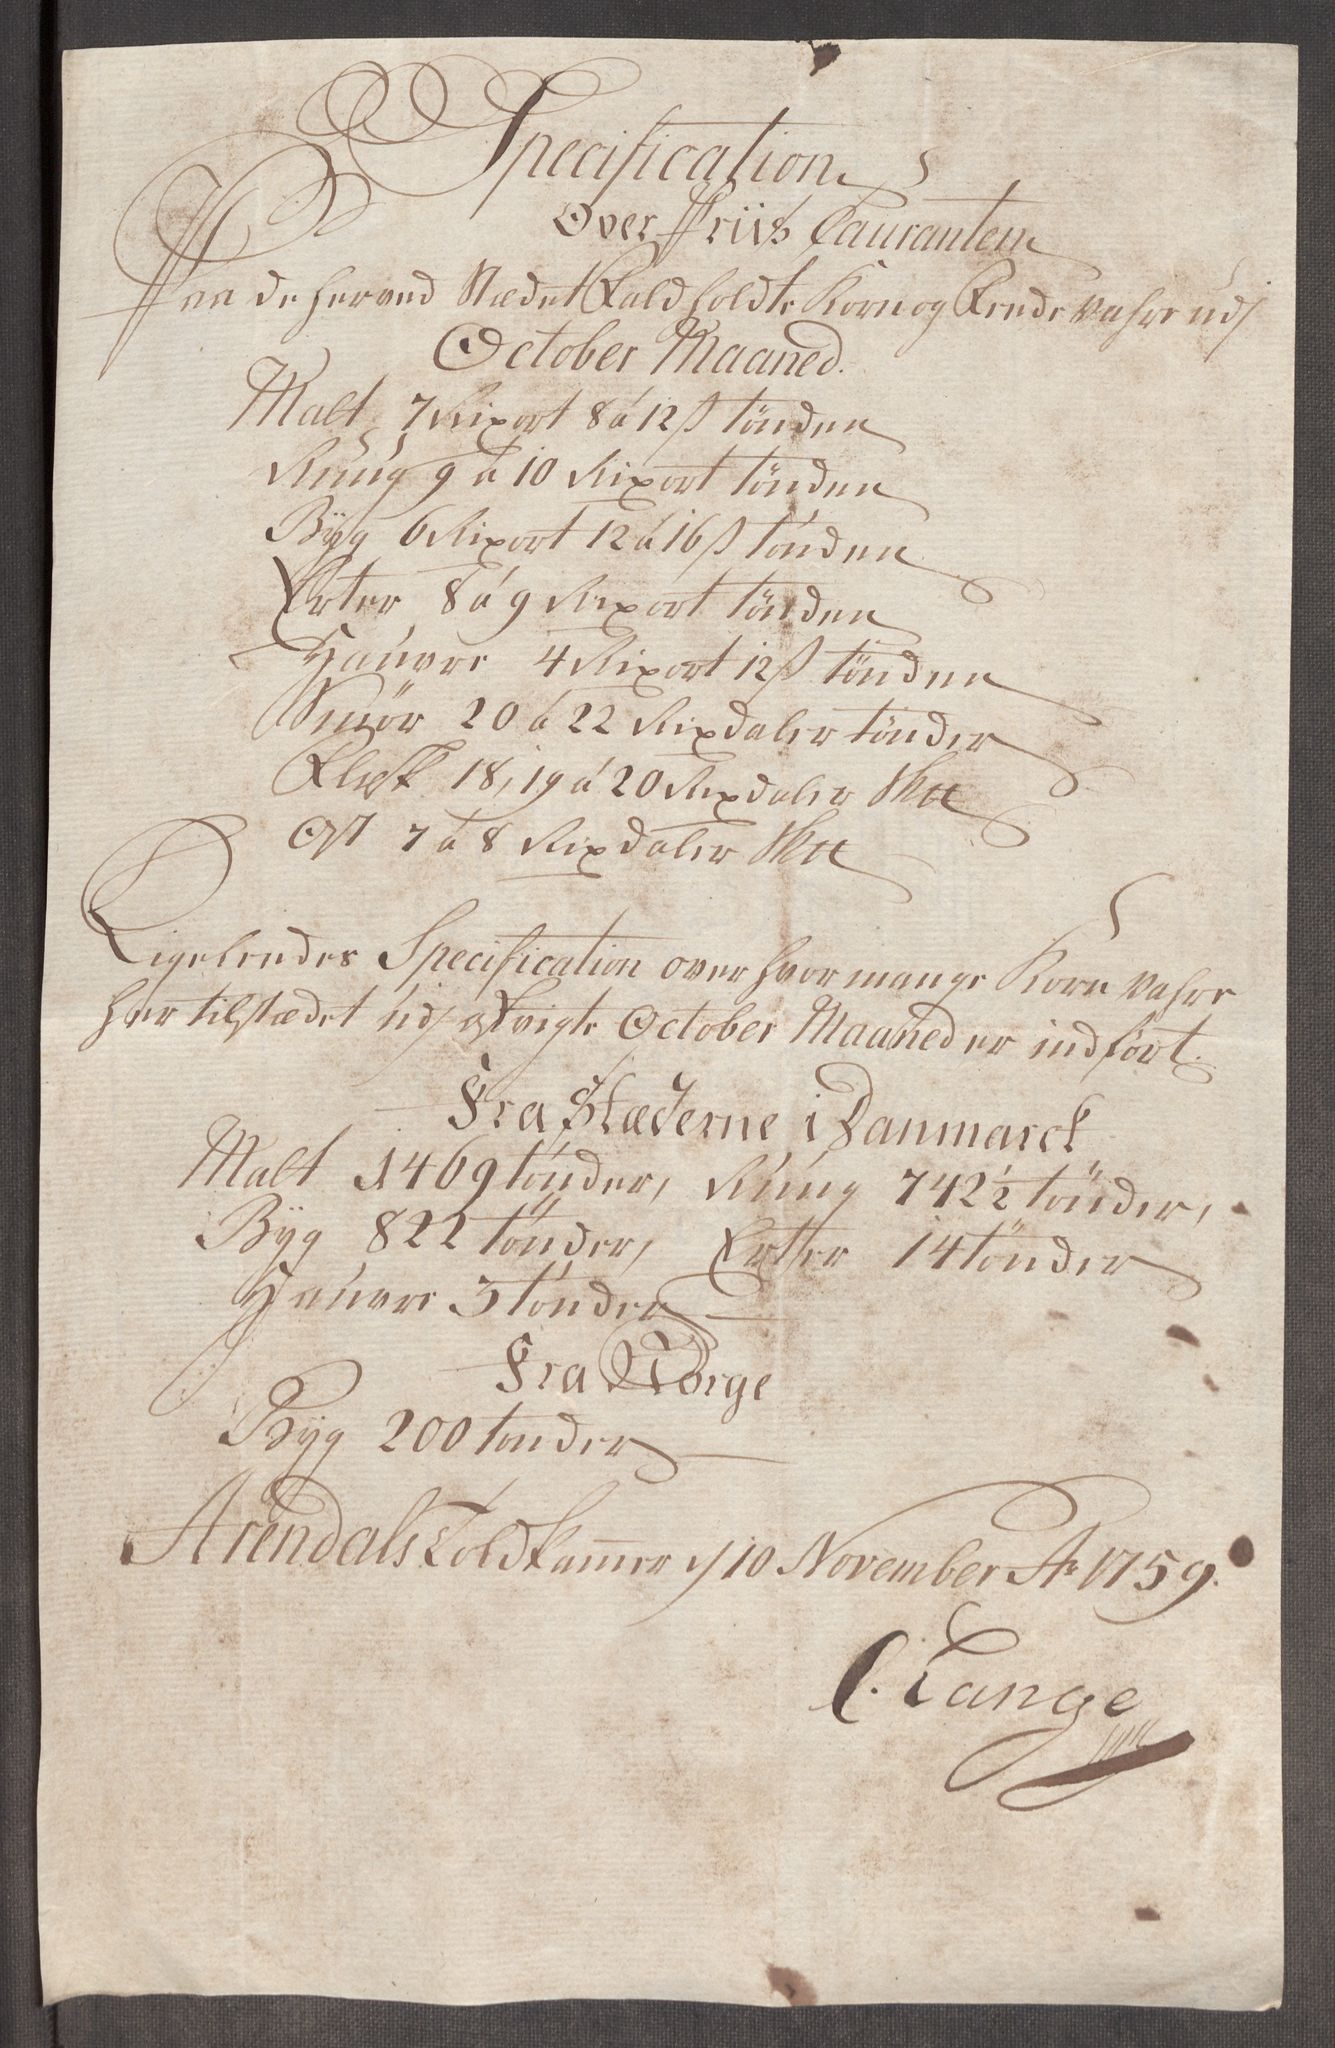 Specification
Over Priis Couranten
Paa de her ved Stædet Fald holdte Korn og Fæede vahre udj
October Maaned.
Malt 7 Rixort 8 á 12 s tönden
Rúúg 9 á 10 Rixort tönden
Byg 6 Rixort 12 á 16 s tönden
Erter 8 á 9 Rixort tönden
Haúvre 4 Rixort 12 s tönden
Smör 20 á 22 Rixdaler tönder
Flesk 18, 19 á 20 Rixdaler Sk℔
Ost 7 á 8 Rixdaler Sk℔
Ligeleedes Specification over hvor mange Korn vahre
her til stædet udj afvigte October Maaned er indfört.
Fra Stæderne i Danmarck
Malt 1469 tönder, Rúúg 742½ tönder,
Byg 822 tönder, Erter 14 tönder
Haúvre 3 tönder
Fra Norge
Byg 200 tönder
Arendals Toldkammer d 10 November Ao 1759.
C. Lange